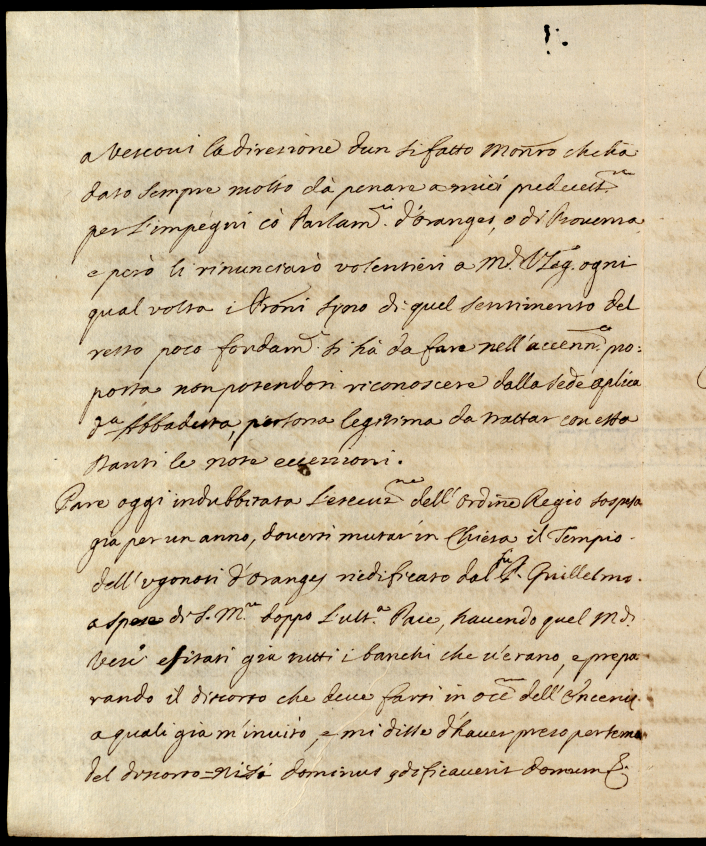 a Vescovi la direzione d'un sì fatto Mon.ro che hà
dato sempre molto dà penare a miei predecess.ri
per l'impegni cò Parlam.ti d'Oranges, e di Provenza
e però li rinunciarò volentieri a M.r V.Leg. ogni
qual volta i Proni sono di quel sentimento del
resto poco fondam.to si hà da fare nell'accenn.ta pro:
posta non potendosi riconoscere dalla sede aplica
q.ta Abbadessa, persona legitima da trattar con essa
stanti le note eccezzioni.
Pare oggi indubbitata l'esecuz.ne dell'Ordine Regio sospeso
già per un anno, doversi mutar in Chiesa il Tempio
dell'Ugonoti d'Oranges riedificato dal fù P. Guillelmo
a spese di S. M.tà doppo l'ult.a Pace, havendo quel M.r
Vesc.o esitati già tutti i banchi che v'erano, e prepa
rando il discorso che deve farsi in occ.ne dell'Encenie
a quali già m'invitò, e mi disse d'haver preso per tema
del discorso = Nisi Dominus edificaverit domum &.